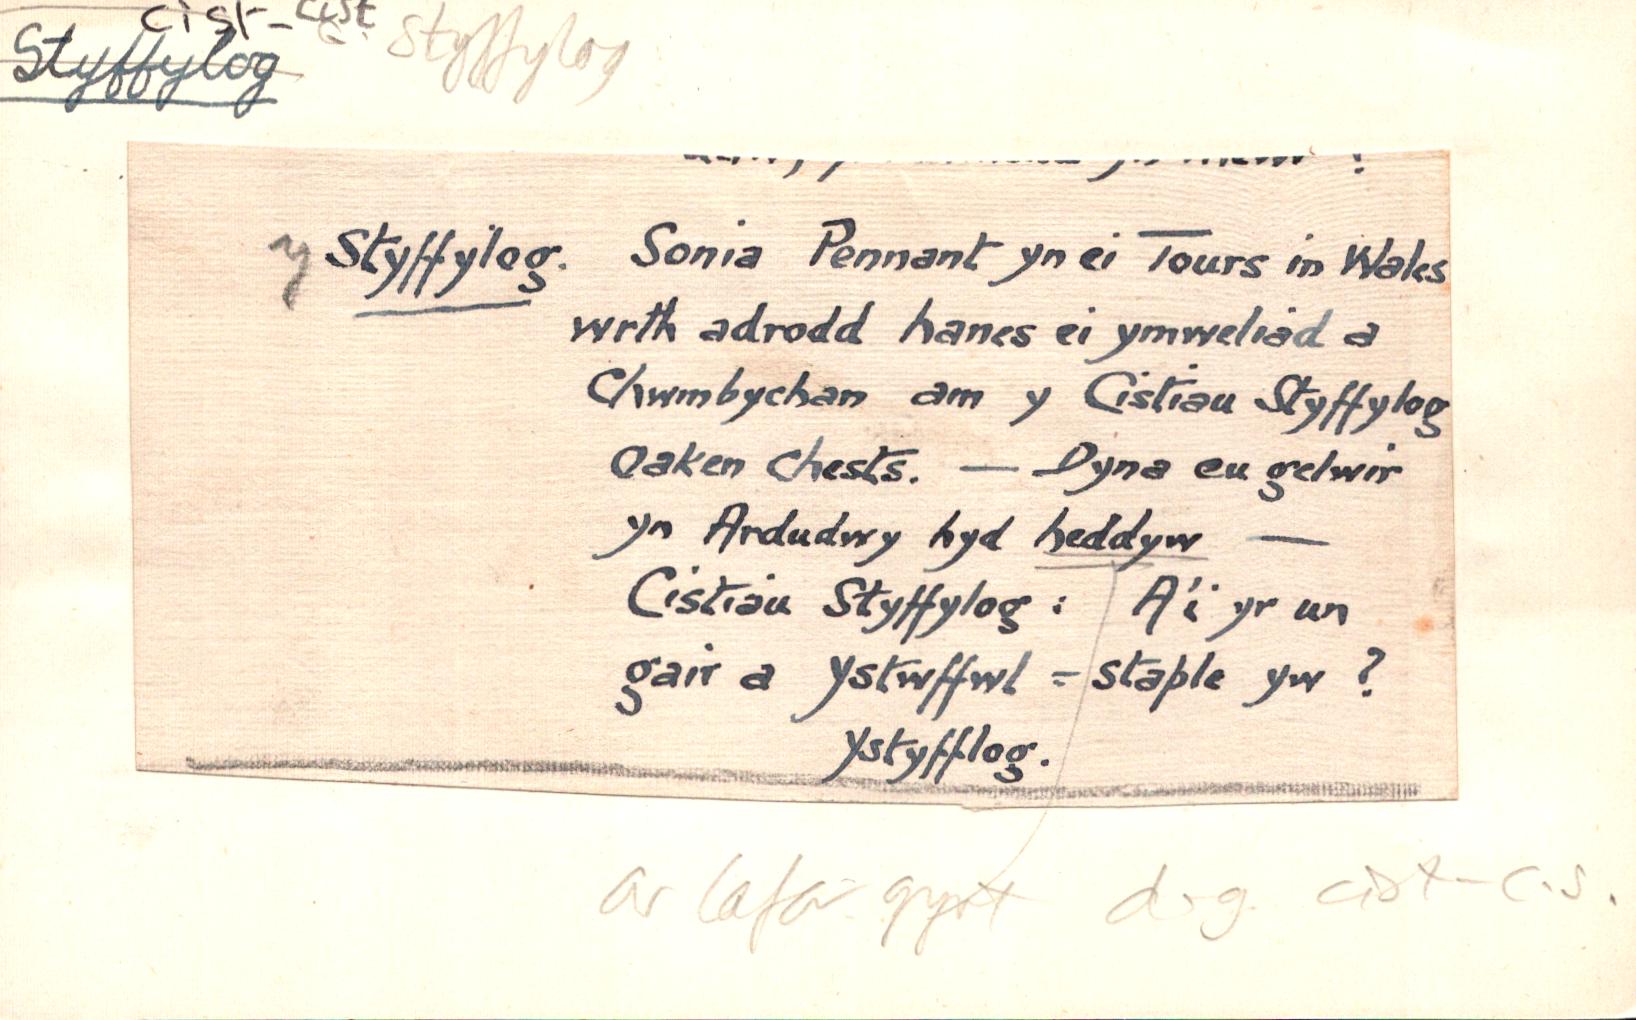 cist - cist
Styffylog styffylog
y Styffylog. Sonia Pennant yn ei Tours in Wales
wrth adrodd hanes ei ymweliad a
Chwmbychan am y Cistiau Styffylog
Oaken Chests. — Dyna eu gelwir
yn Ardudwy hyd heddyw —
Cistiau Styffylog : A'i yr un
gair a ystwffwl = staple yw ?
ystyfflog.
ar lafar gynt d.g. cist - cis.